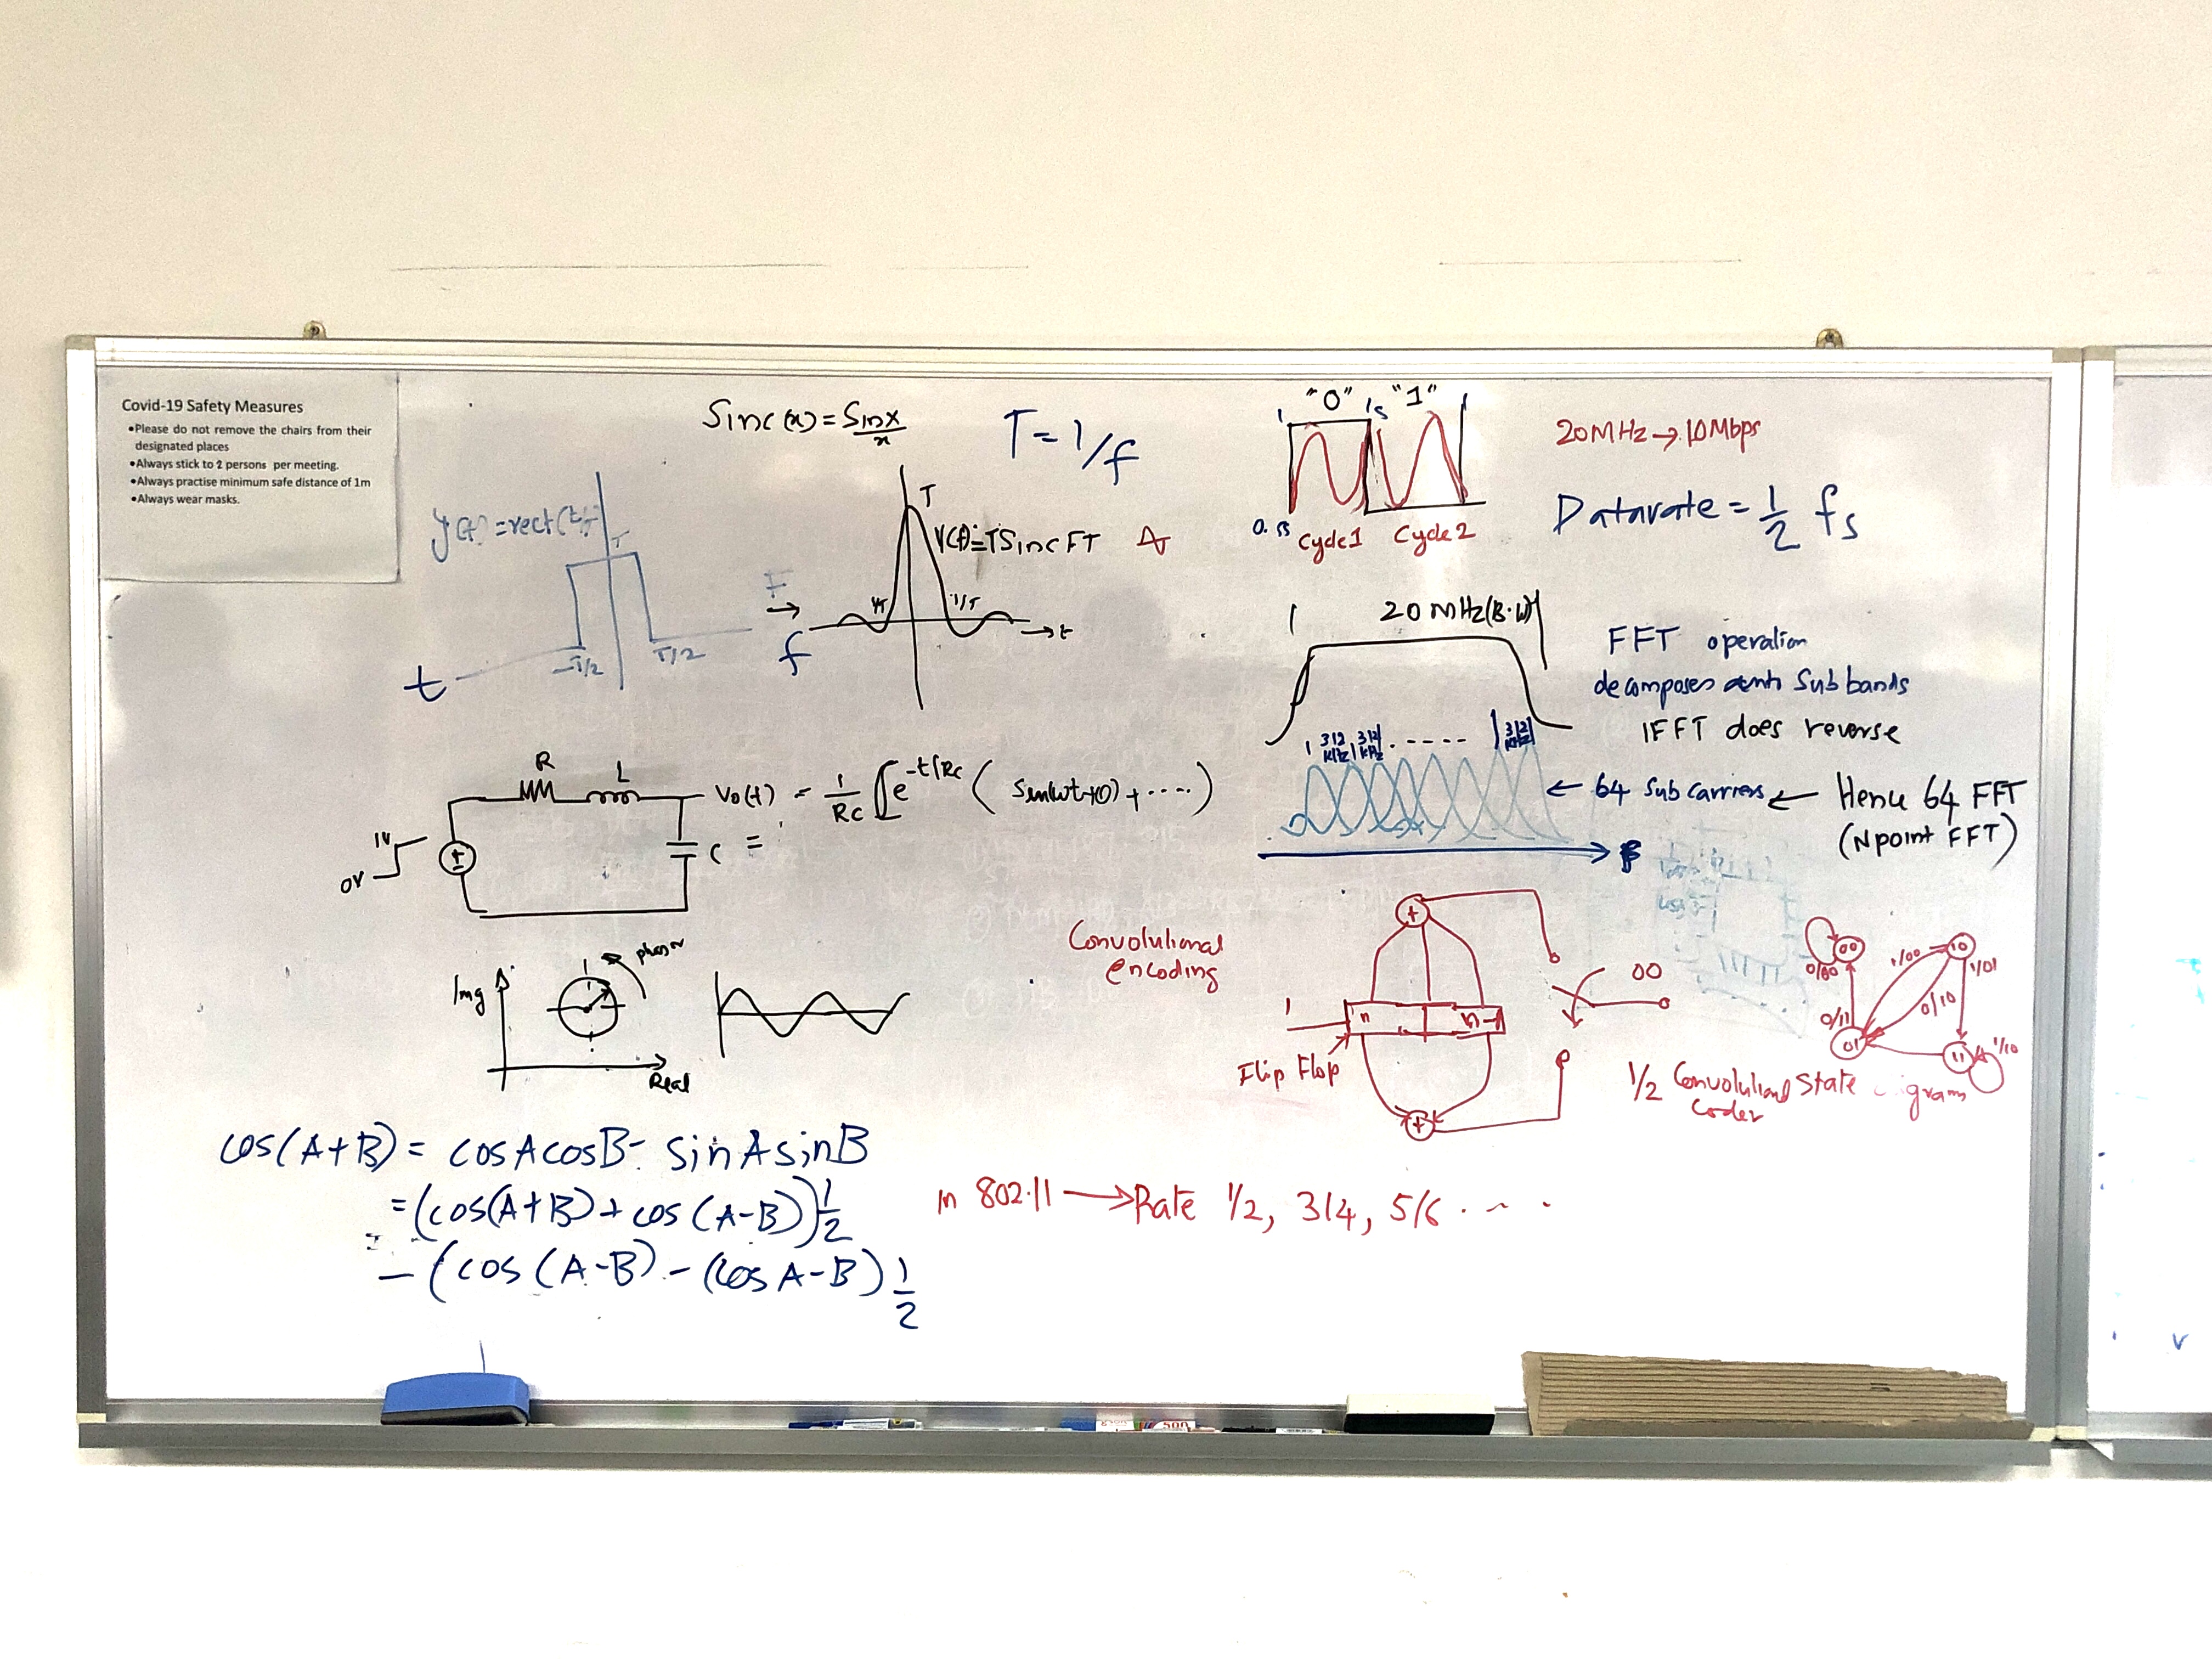 Covid-19 Safety Measures
•Please do not remove the chairs from their
designated places
•Always stick to 2 persons per meeting.
•Always practise minimum safe distance of 1m
•Always wear masks.
Sinc(x) = Sinx/x
T = 1/f
y(t) = rect(t/T)
T
-T/2
T/2
t
F
f
T
Y(f) = T Sinc FT
1/T
1/T
t
"0"
1s
"1"
cycle1
Cycle2
20MHz → 10Mbps
Datarate = 1/2 fs
20MHz (B.W)
FFT operation
decomposes Subbands
IFFT does reverse
312 KHz
312 KHz
- - - - -
312 KHz
← 64 Subcarriers ← Hence 64 FFT
(N point FFT)
R
L
Vo(t) = 1/RC ∫ e^-t/RC ( Sin(wt+θ) + ····)
=
C
1V
0V
Img
phasor
Real
Convolutional
encoding
+
1
n
n-1
Flip Flop
+
00
1/2 Convolutional
Coder
State
gram
00
0/00
10
1/00
1/01
0/10
0/11
01
11
1/10
cos(A+B) = cosAcosB - sinAsinB
= (cos(A+B) + cos(A-B)) 1/2
- (cos(A-B) - (cos A-B) 1/2
In 802.11 → Rate 1/2, 3/4, 5/6 . . . .